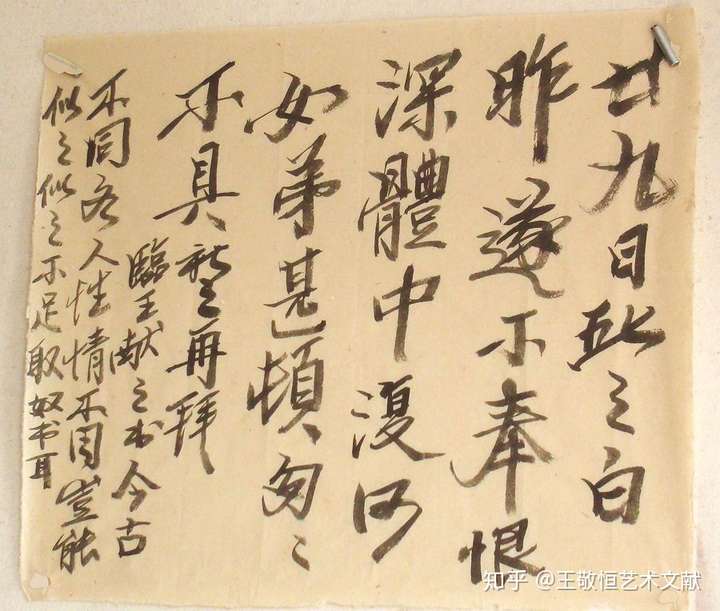 廿九日献之白
昨遂不奉恨
深體中復何
如弟甚頓匆〻
不具献之再拜
臨王献之书今古
不同各人性情不同豈能
似之似之不足取奴书耳
知乎 @王敬恒艺术文献